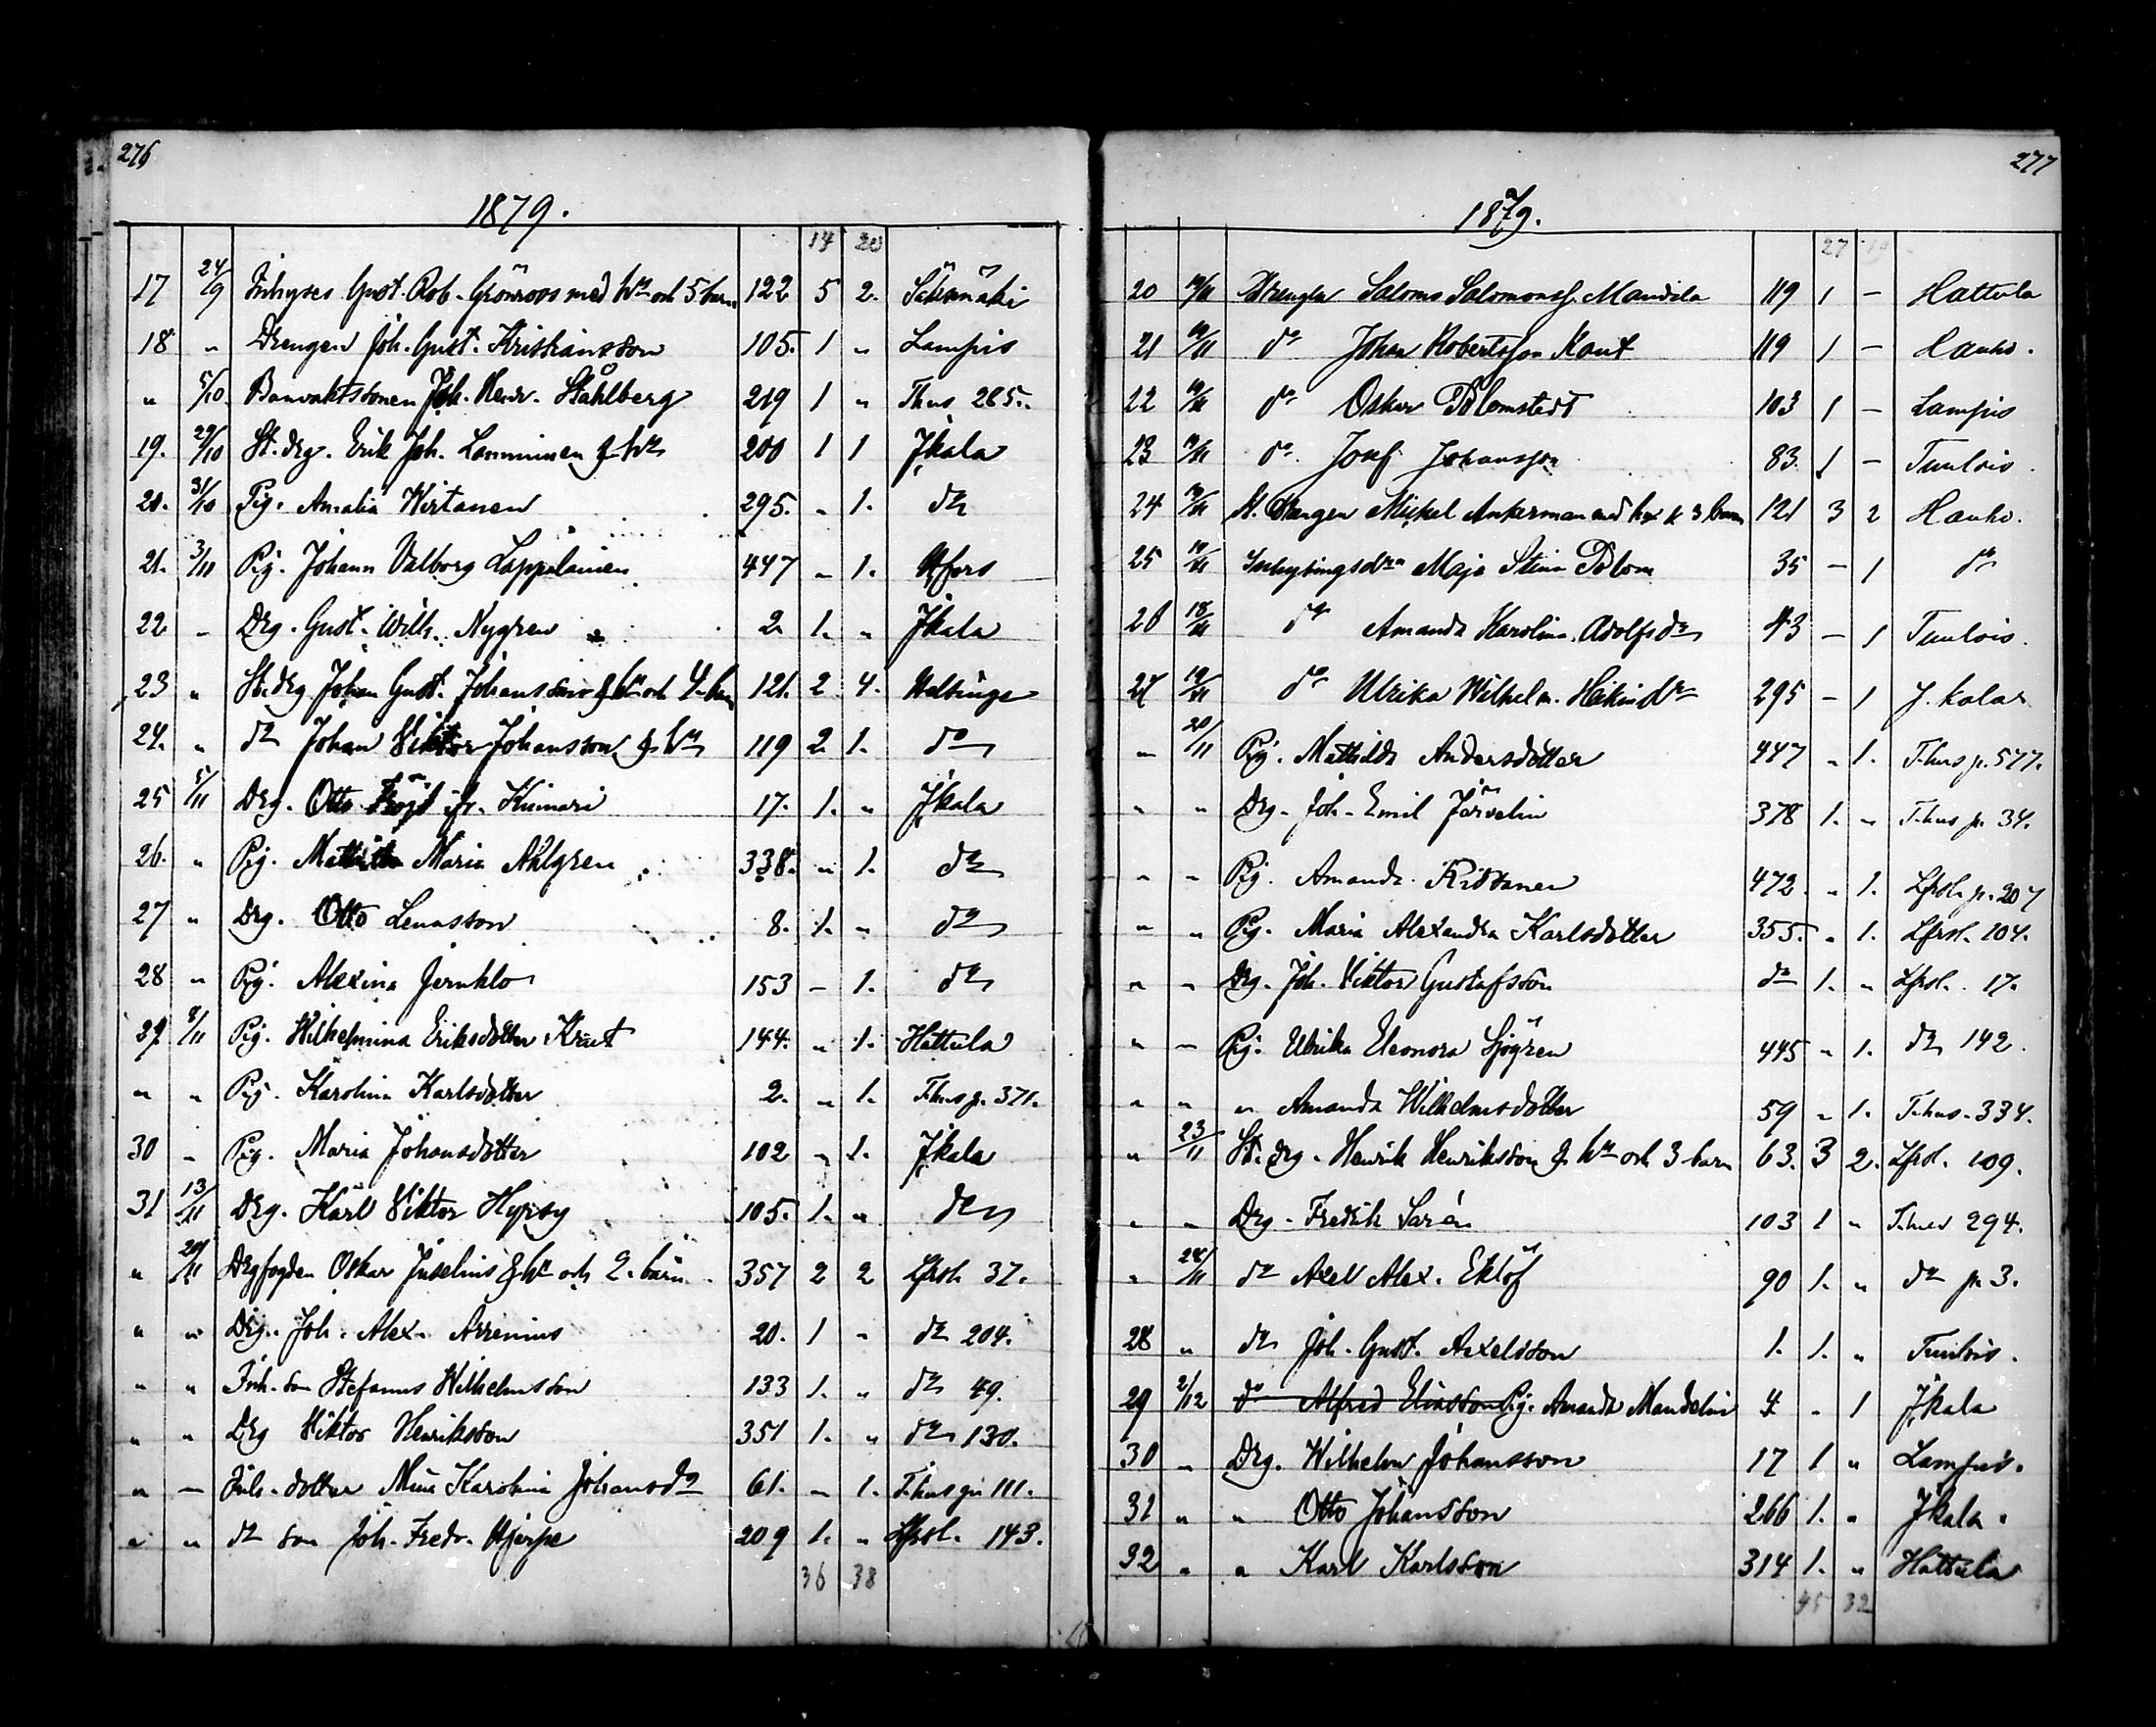 276
1879.
14 20
17 24/9 Inhyses Gust. Rob. Grönroos med h:u och 5 barn 122 5 2. Säksmäki
18 " Drengen Joh. Gust. Kristiansson 105. 1 " Lampis
" 5/10. Banvaktssonen Joh. Henr. Ståhlberg 219 1 " Thus 265.
19. 29/10 St. drg. Erik Joh. Lamminen & h:u 200 1 1 Jkala
20. 31/10 Pig. Amalia Wirtanen 295. " 1. d:o
21. 3/11 Pig. Johann Valborg Lappalainen 447 " 1. Hfors
22 " Drg. Gust. Wilh. Nygren 2. 1. " Jkala
23 " St. drg Johan Gust. Johansson & h:u och 4 barn 121. 2 4. Helsinge
24. " d:o Johan Viktor Johansson & h:u 119 2. 1. d:o
25 5/11 Drg. Otto Fröjd ifr. Kuimari 17. 1. " Jkala
26. " Pig. Maria Ahlgren 338. " 1. d:o
27 " Drg. Otto Lenasson 8. 1. " d:o
28 " Pig. Alexina Jernklo 153 – 1. d:o
29 8/11 Pig. Wilhelmina Eriksdotter Krut 144. " 1. Hattula
" " Pig. Karolina Karlsdotter 2. " 1. T.hus p. 371.
30 " Pig. Maria Johansdotter 102 " 1. Jkala
31 13/11 Drg. Karl Viktor Hypsy 105. 1. " d:o
" 20/11 Drgfogden Oskar Juselius & h:u och 2 barn 357 2 2 Lfrsl. 37.
" " Drg. Joh. Alex. Arrenius 20. 1 " d:o 204.
" " Inh. son Stefanus Wilhelmsson 133 1. " d:o 49.
" " Drg Viktor Henriksson 351 1. " d:o 130.
" – Inh. dotter Mina Karolina Johansd:r 61. " 1. T.hus p. 111.
" " d:o son Joh. Fredr. Hjerpe 209 1. " Lfrsl. 143.
36 38
277
1879.
27
20 10/11 Drengen Salomo Salomonss. Mandila 119 1 – Hattula
21 10/11 d:o Johan Robertsson Kaut 119 1 – Hauho.
22 10/11 d:o Oskar Blomstedt 103 1 – Lampis
23 10/11 d:o Josef Johansson 83. 1 – Tuulois.
24 10/11 St. Drengen Mickel Ankerman med hu & 3 barn 121 3 2 Hauho.
25 10/11 Inhysingsd:rn Maja Stina Blom 35 – 1 d:o
26 18/11 d:o Amanda Karolina Adolfsd:r 43 – 1 Tuulois.
27 19/11 d:o Ulrika Wilhelm. Heikind:r 295 – 1 J.kala
" 20/11 Pig. Mathilda Andersdotter 447 " 1. T.hus p. 577.
" " Drg. Joh. Emil Järvelin 378 1. " T.hus p. 34.
" " Pig. Amanda Kristanen 472. " 1. Lfrsl. p. 207
" " Pig. Maria Alexandra Karlsdotter 355. " 1. Lfrsl. 104.
" " Drg. Joh. Viktor Gustafsson d:o 1. " Lfrsl. 17.
" – Pig. Ulrika Eleonora Sjögren 445 " 1. d:o 142.
" " " Amanda Wilhelmsdotter 59 " 1. T.hus. 334.
" 23/11 St. drg. Henrik Henriksson & h:u och 3 barn 63. 3 2. Lfrsl. 109.
" " Drg. Fredrik Sarén 103 1 " T.hus 294.
" 24/11 d:o Axel Alex. Eklöf 90 1. " d:o p. 3.
28 " d:o Joh. Gust. Axelsson 1. 1. " Tuulois.
29 2/12 d:o Alfred Eliasson Pig. Amanda Mandelin 4 " 1 Jkala
30 " Drg. Wilhelm Johansson 17 1 " Lampis.
31 " " Otto Johansson 266 1. " Jkala.
32 " " Karl Karlsson 314 1. " Hattula
45 32